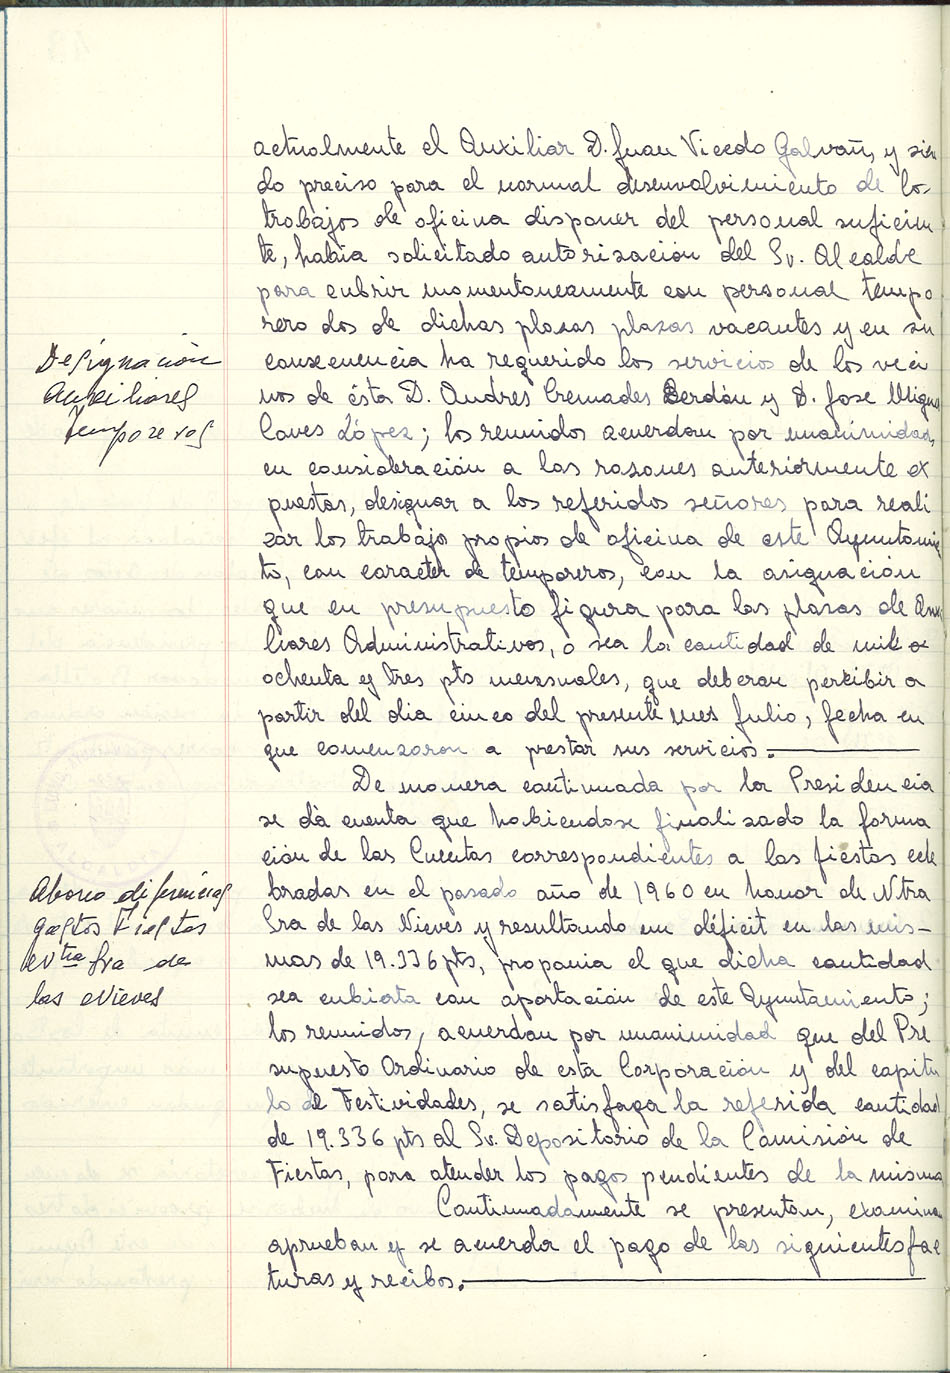 actualmente el Auxiliar D. Juan Vicedo Galvañ, y sien
do preciso para el normal desenvolvimiento de los
trabajos de oficina disponer del personal suficien
te, habia solicitado autorización del Sr. Alcalde
para cubrir momentoneamente con personal tempo
rero dos de dichas plazas plazas vacantes y en su
Designación
consecuencia ha requerido los servicios de los veci
Auxiliares
nos de ésta D. Andres Cremades Berdón y D. Jose Miguel
temporeros
López; los reunidos acuerdan por unanimidad,
en consideración a las razones anteriormente ex
puestas, designar a los referidos señores para reali
zar los trabajos propios de oficina de este Ayuntamien
to, con caracter de temporeros, con la asignación
que en presupuesto figura para las plazas de Auxi
liares Administrativos, o sea la cantidad de mil
ochenta y tres pts mensuales, que deberan percibir a
partir del dia cinco del presente mes Julio, fecha en
que comenzaron a prestar sus servicios.
De manera continuada por la Presidencia
se dá cuenta que habiendose finalizado la forma
ción de las Cuentas correspondientes a las fiestas cele
Abono diferencias
bradas en el pasado año de 1960 en honor de Ntra
gastos Fiestas
Sra de las Nieves y resultando un déficit en las mis-
Ntra Sra de
mas de 19.336 pts, proponia el que dicha cantidad
las Nieves
sea cubierta con aportación de este Ayuntamiento;
los reunidos, acuerdan por unanimidad que del Pre
supuesto Ordinario de esta Corporación y del capitu
lo de Festividades, se satisfaga la referida cantidad
de 19.336 pts al Sr. Depositario de la Comisión de
Fiestas, para atender los pagos pendientes de la misma
Continuadamente se presentan, examinan
aprueban y se acuerda el pago de las siguientes fac
turas y recibos.